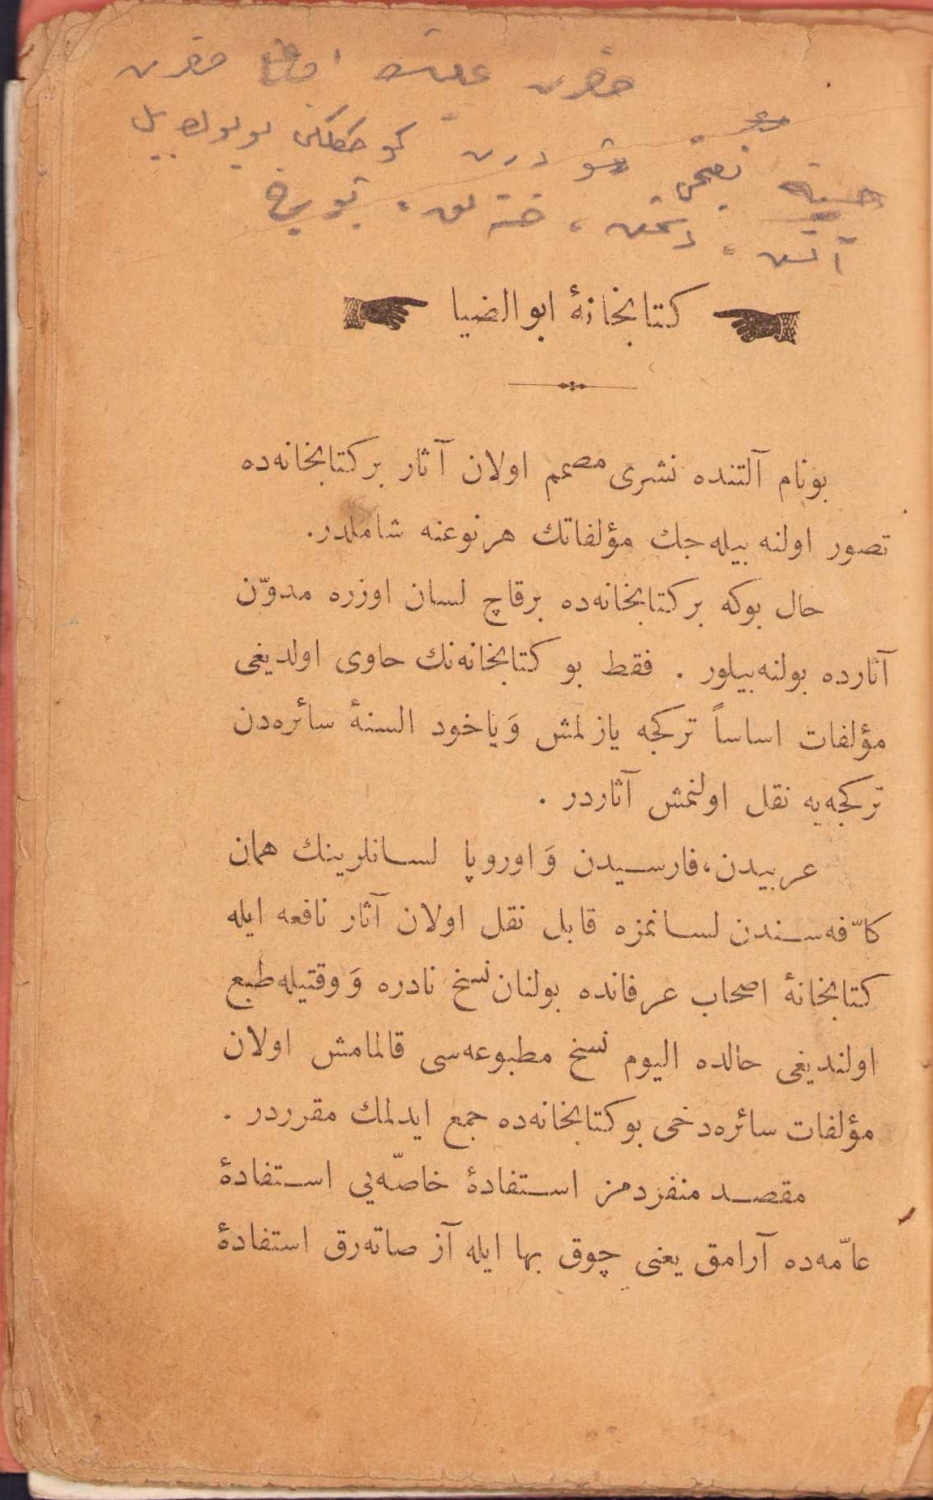 كتابخانهٔ ابوالضيا
بونام آلتنده نشرى مصمم اولان آثار بر كتابخانه‌ده
تصور اولنه بيله‌جك مؤلفاتك هرنوعنه شاملدر.
حال بوكه بر كتابخانه‌ده برقاچ لسان اوزره مدوّن
آثارده بولنه‌بيلور . فقط بو كتابخانه‌نك حاوى اولديغى
مؤلفات اساساً تركجه يازلمش وَياخود السنهٔ سائره‌دن
تركجه‌يه نقل اولنمش آثاردر .
عربيدن، فارسيدن وَاوروپا لسانلرينك همان
كاّفه‌سندن لسانمزه قابل نقل اولان آثار نافعه ايله
كتابخانهٔ اصحاب عرفانده بولنان نسخ نادره وَوقتيله طبع
اولنديغى حالده اليوم نسخ مطبوعه‌سى قالمامش اولان
مؤلفات سائره‌دخى بو كتابخانه‌ده جمع ايدلمك مقرردر .
مقصد منفردمز استفادهٔ خاصّه‌يى استفادهٔ
عاّمه‌ده آرامق يعنى چوق بها ايله آز صاته‌رق استفادهٔ